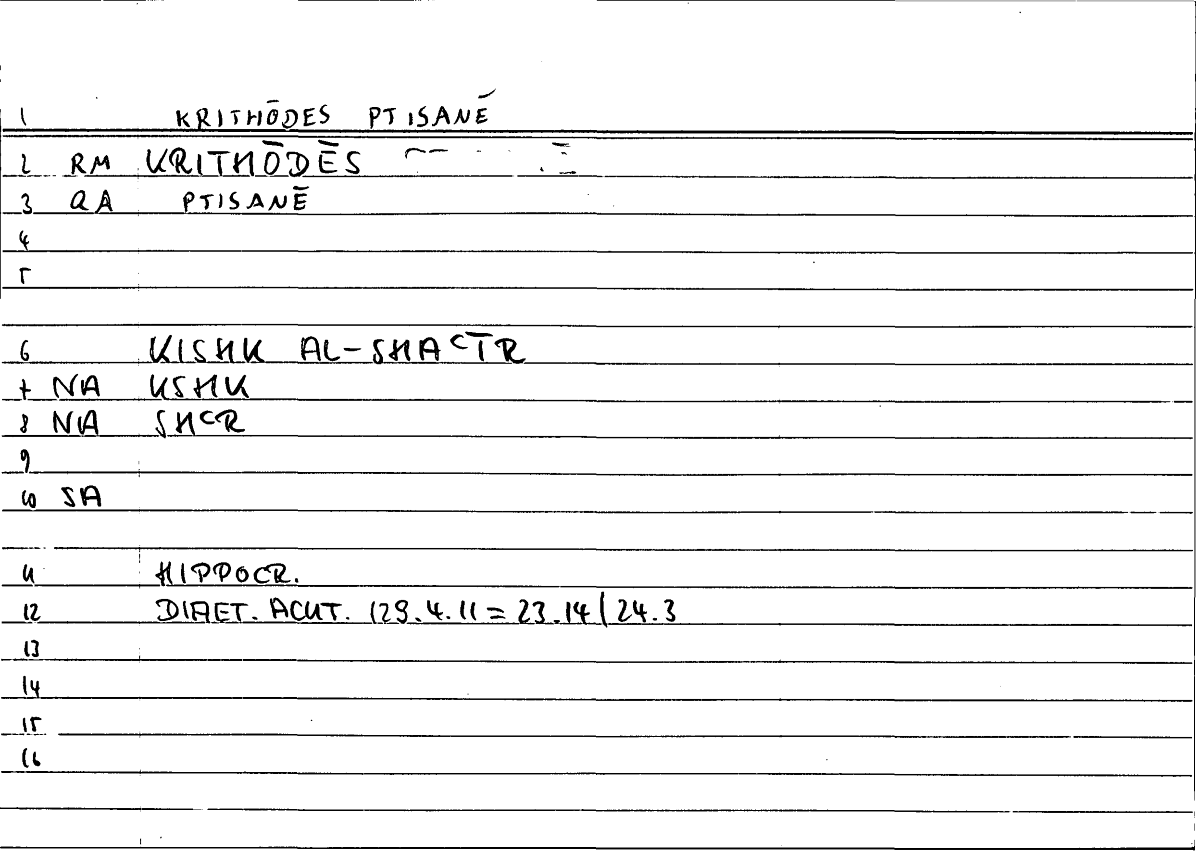 1 KRITHŌDES PTISANĒ
2 RM KRITHŌDĒS
3 QA PTISANĒ
4
5
6 KISHK AL-SHAʿĪR
7 NA KSHK
8 NA SHʿR
9
10 SA
11 HIPPOCR.
12 DIAET. ACUT. 129.4.11 = 23.14 / 24.3
13
14
15
16